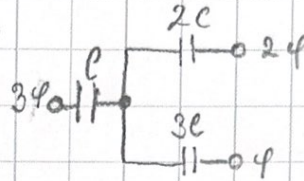 2C
2φ
C
3φ
3C
φ